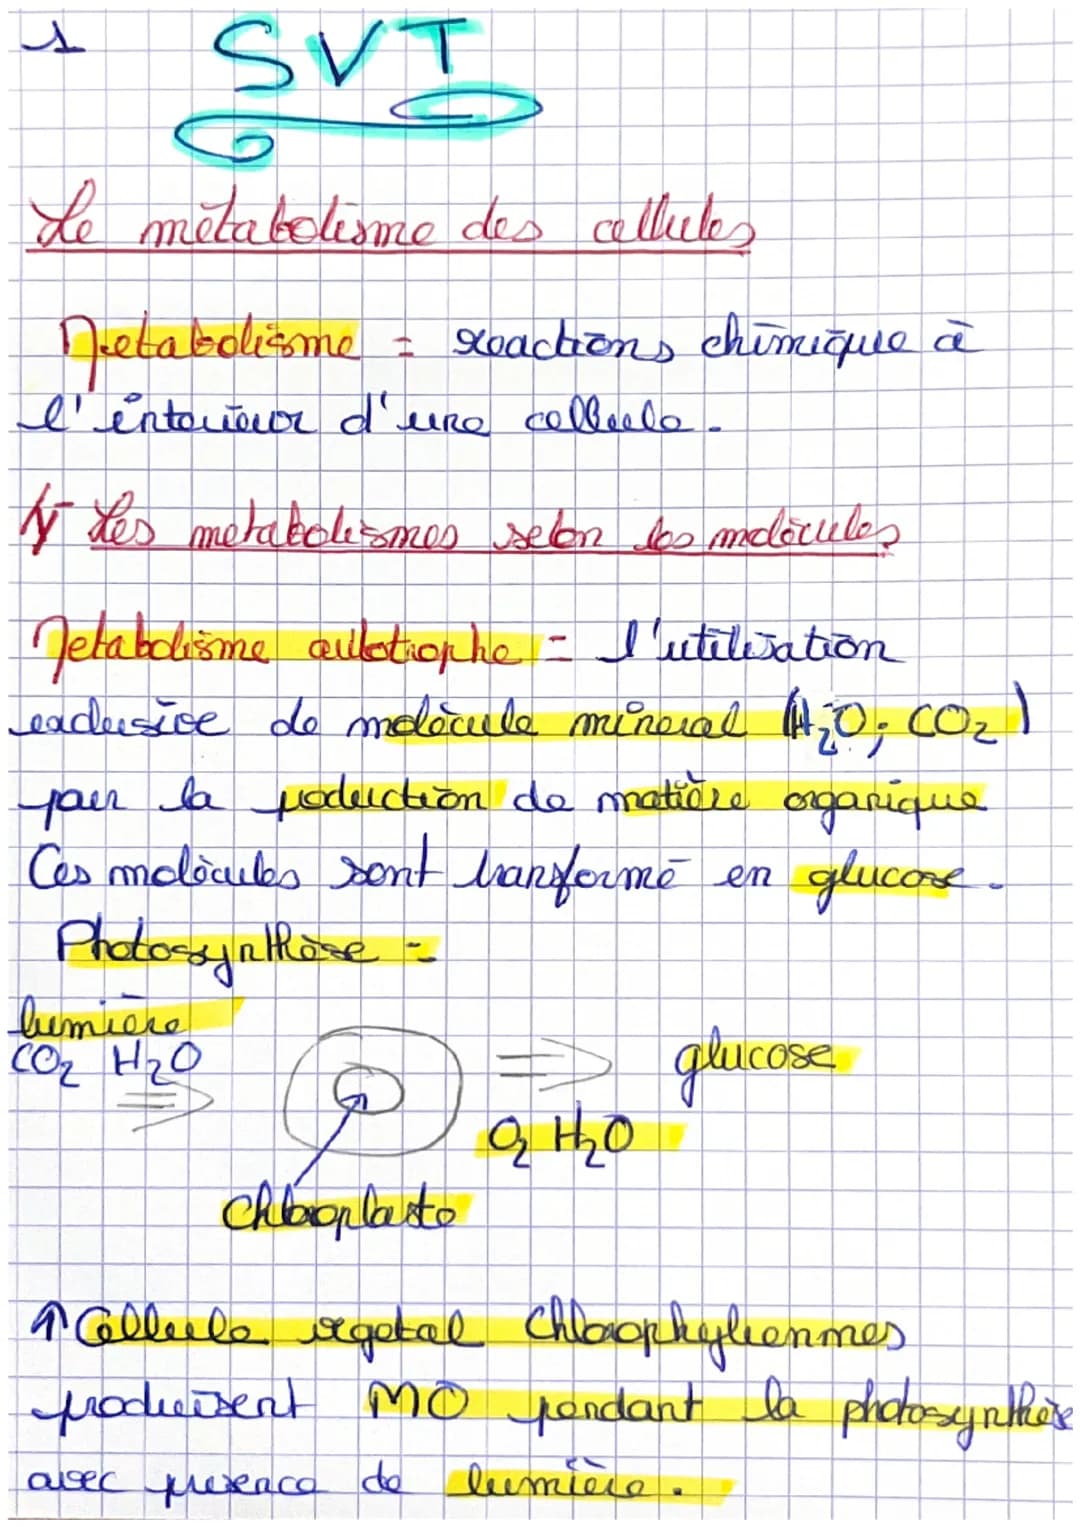 1
SVT
Le métabolisme des cellules
Métabolisme = reactions chimique à
l'intérieur d'une cellule.
1) Les metabolismes selon les molécules
Métabolisme autotrophe = l'utilisation
exclusive de molécule mineral (H₂O; CO₂)
par la production de matière organique
Ces molécules sont transformé en glucose.
Photosynthèse =
lumière
CO₂ H₂O
glucose
O₂ H₂O
chloroplaste
↑ Cellule vegetal Chlorophyliennmes
produisent MO pendant la photosynthèse
avec presence de lumière.